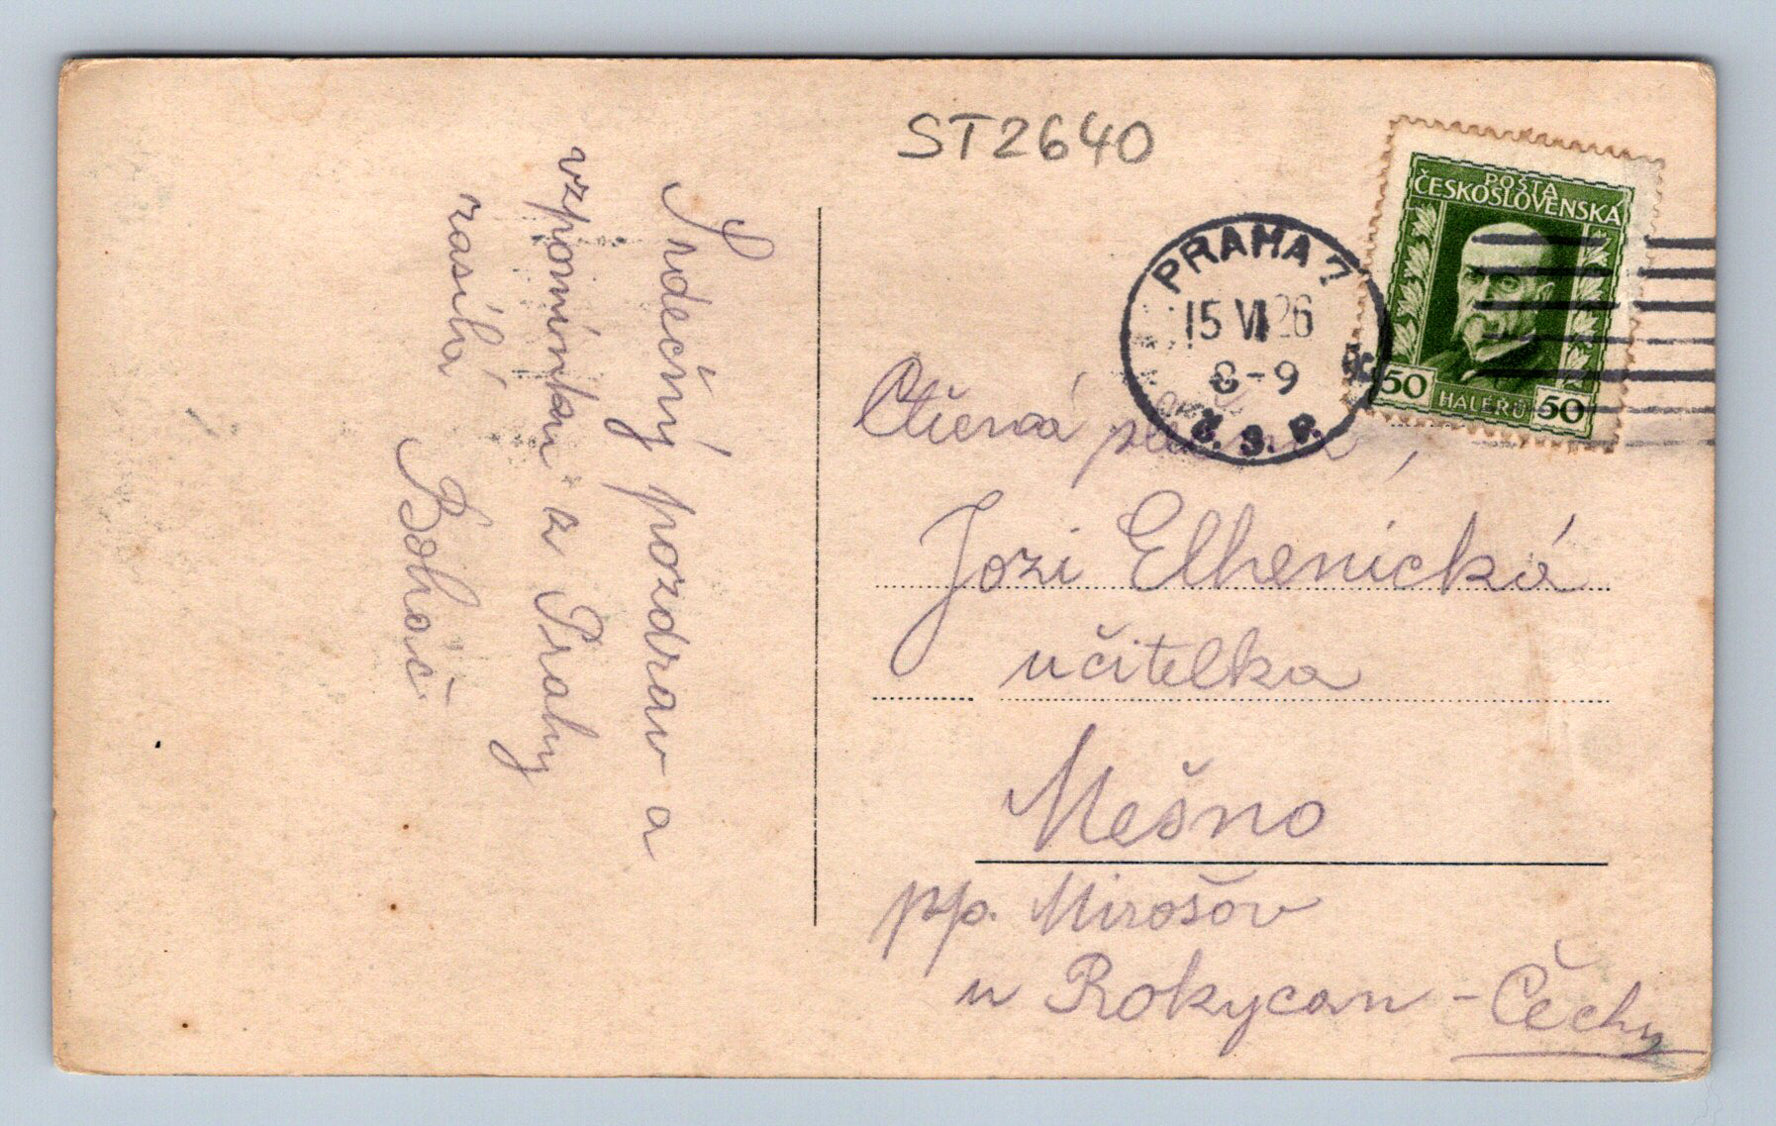 ST2640
POŠTA
ČESKOSLOVENSKÁ
50 HALÉŘŮ 50
PRAHA 7
15 VI 26
8-9
Č. S. P.
Ctěná
Jozi Elhenická
učitelka
Mešno
pp. Mirošov
u Rokycan - Čechy
Srdečný pozdrav a
vzpomínku z Prahy
zasílá
Boháč